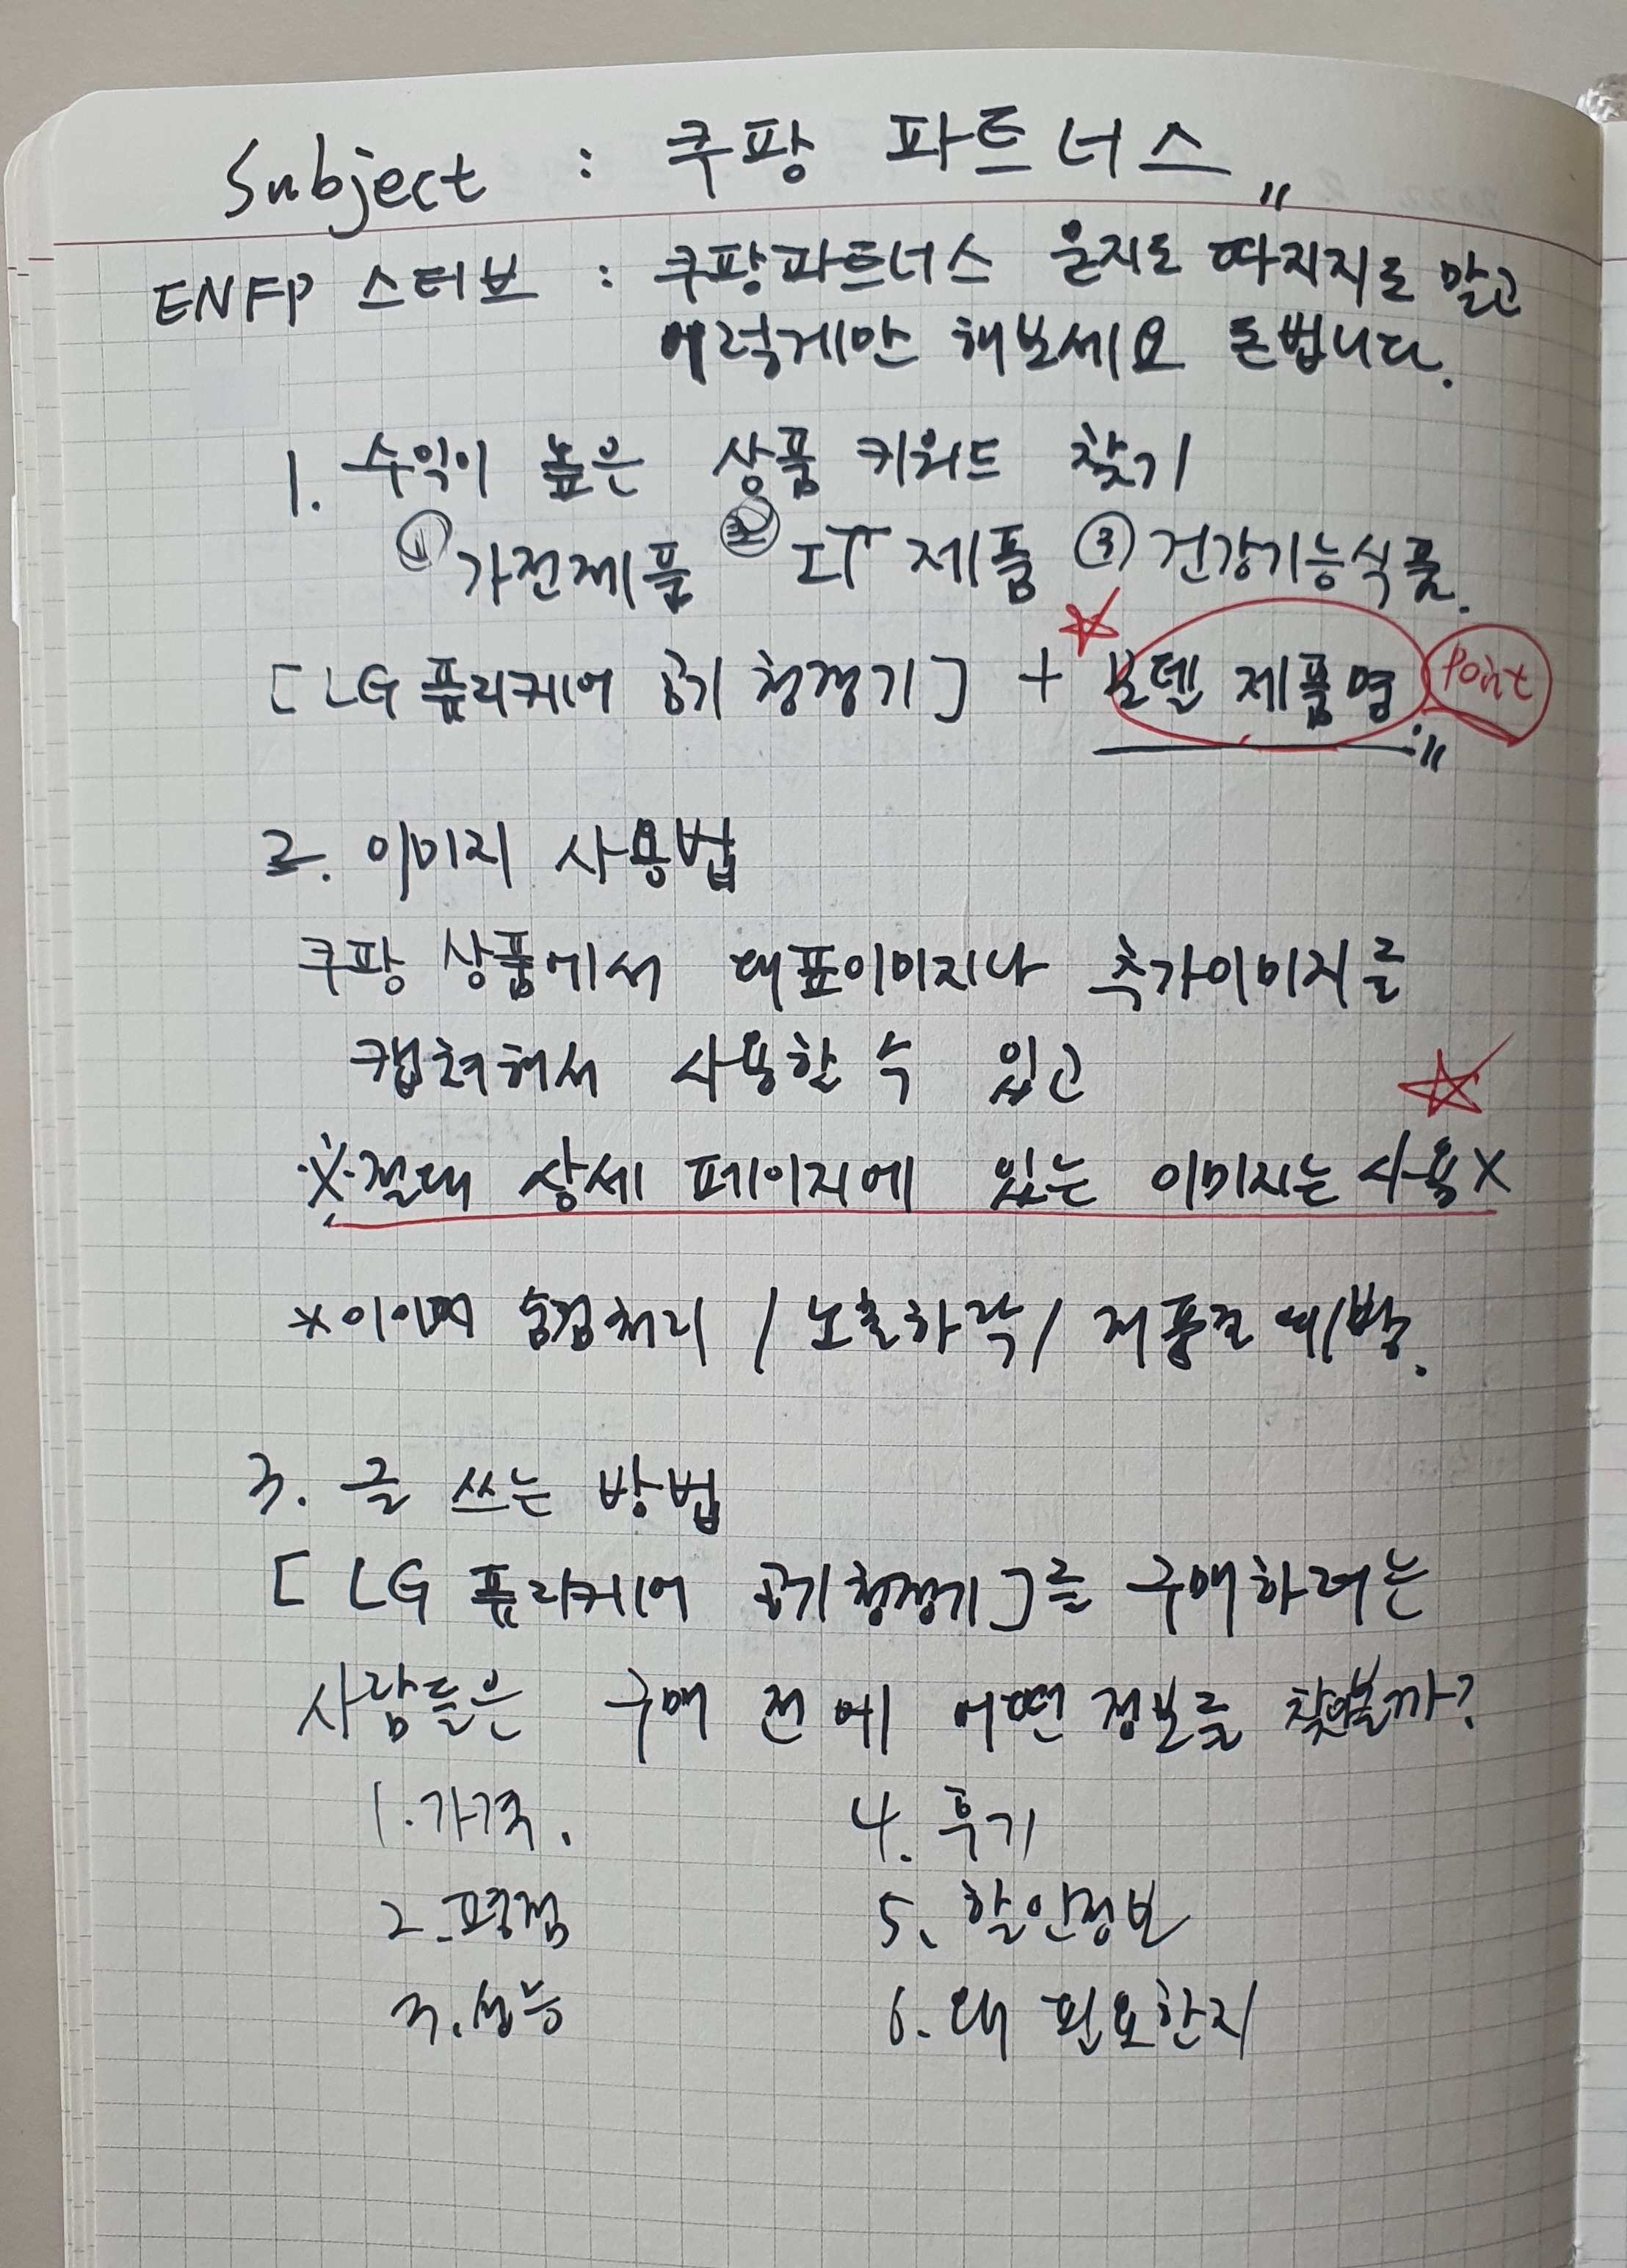 Subject : 쿠팡 파트너스 〃
ENFP 스티브 : 쿠팡파트너스 묻지도 따지지도 말고
이렇게만 해보세요 돈법니다.
1. 수익이 높은 상품 키워드 찾기
① 가전제품 ② IT 제품 ③ 건강기능식품.
[LG 퓨리케어 공기청정기] + ☆ 모델 제품명 〃 Point
2. 이미지 사용법
쿠팡 상품에서 대표이미지나 추가이미지를
캡쳐해서 사용할 수 있고
☆
※절대 상세 페이지에 있는 이미지는 사용X
* 처리 / 노출하락 / 저품질 예방.
3. 글 쓰는 방법
[LG 퓨리케어 공기청정기]를 구매하려는
사람들은 구매 전에 어떤 정보를 찾아볼까?
1. 가격. 4. 후기
2. 평점 5. 할인정보
3. 성능 6. 왜 필요한지